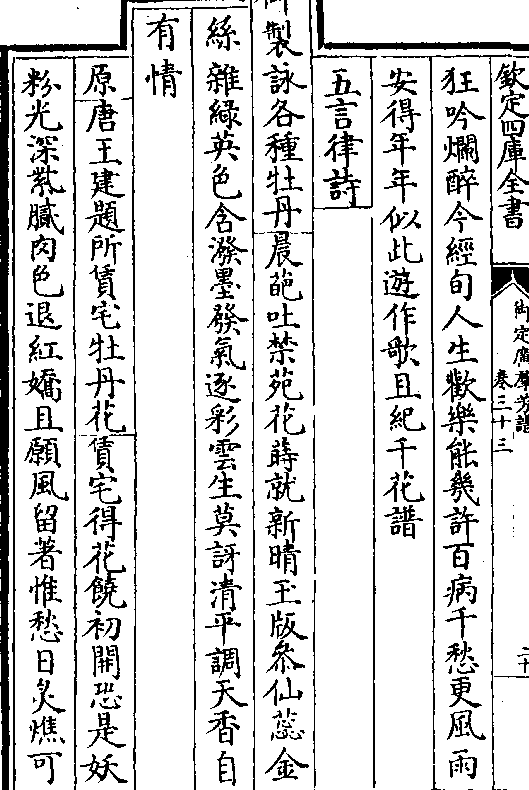 欽定四庫全書
御定廣羣芳譜
卷三十三
二十
狂吟爛醉今經旬人生歡樂能幾許百病千愁更風雨
安得年年似此遊作歌且紀千花譜
五言律詩
御製詠各種牡丹晨葩吐禁苑花蒔就新晴玉版叅仙蕊金
絲雜綠英色含潑墨發氣逐彩雲生莫訝清平調天香自
有情
原唐王建題所賃宅牡丹花賃宅得花饒初開恐是妖
粉光深紫膩肉色退紅嬌且願風留著惟愁日炙燋可